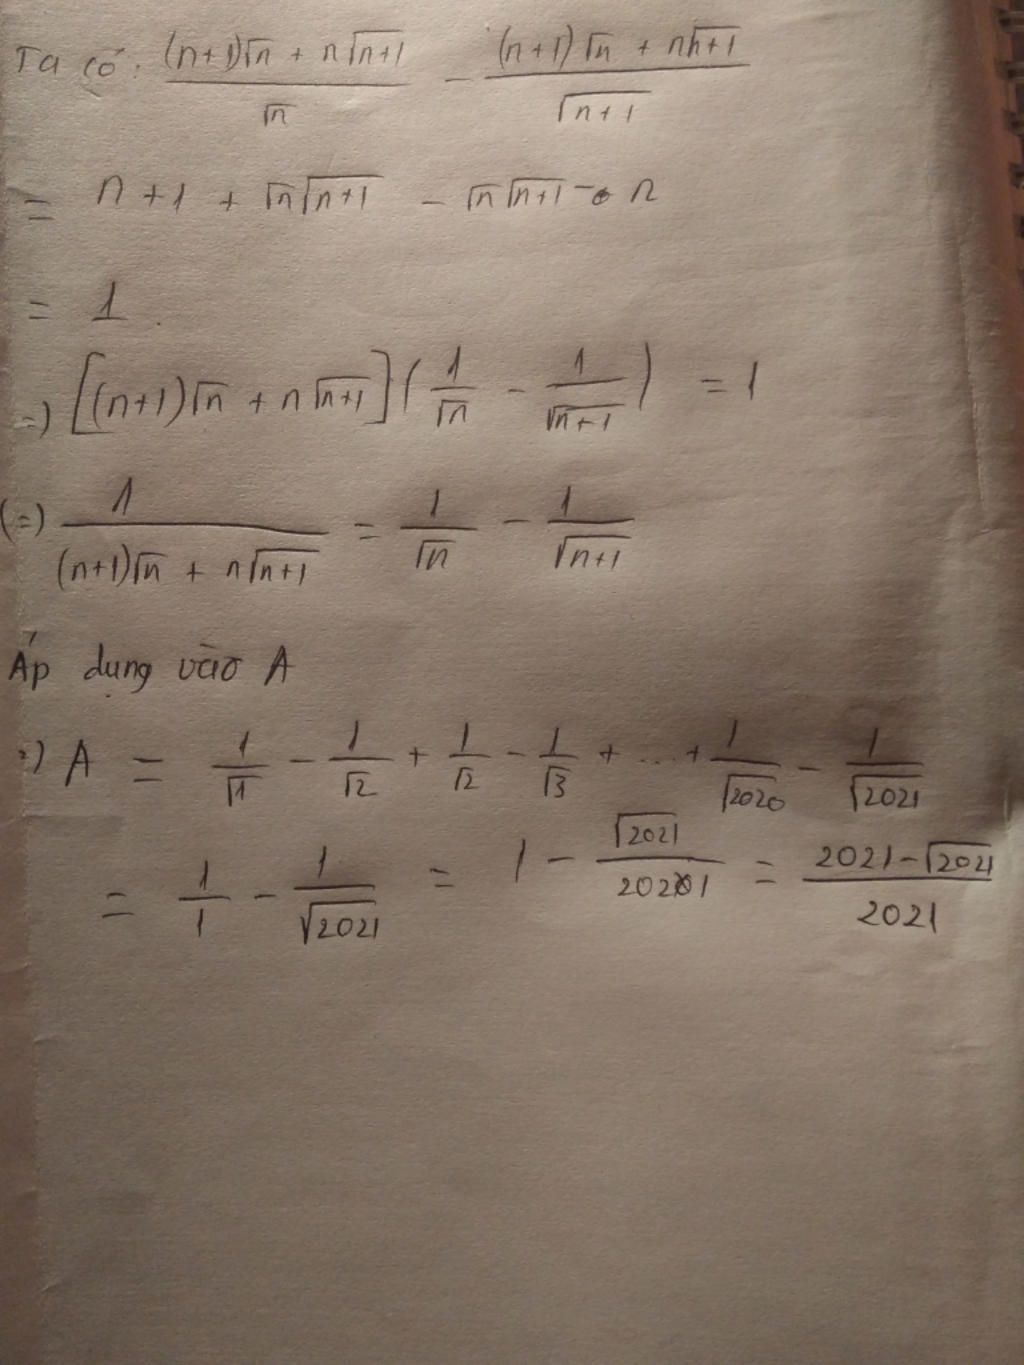 Ta có: ((n+1)√n + n√(n+1))/√n - ((n+1)√n + n√(n+1))/√(n+1)
= n + 1 + √n√(n+1) - √n√(n+1) - n
= 1.
=) [(n+1)√n + n√(n+1)](1/√n - 1/√(n+1)) = 1
(=) 1/((n+1)√n + n√(n+1)) = 1/√n - 1/√(n+1)
Áp dụng vào A
=) A = 1/√1 - 1/√2 + 1/√2 - 1/√3 + ... + 1/√2020 - 1/√2021
= 1/1 - 1/√2021 = 1 - √2021/2021 = (2021 - √2021)/2021